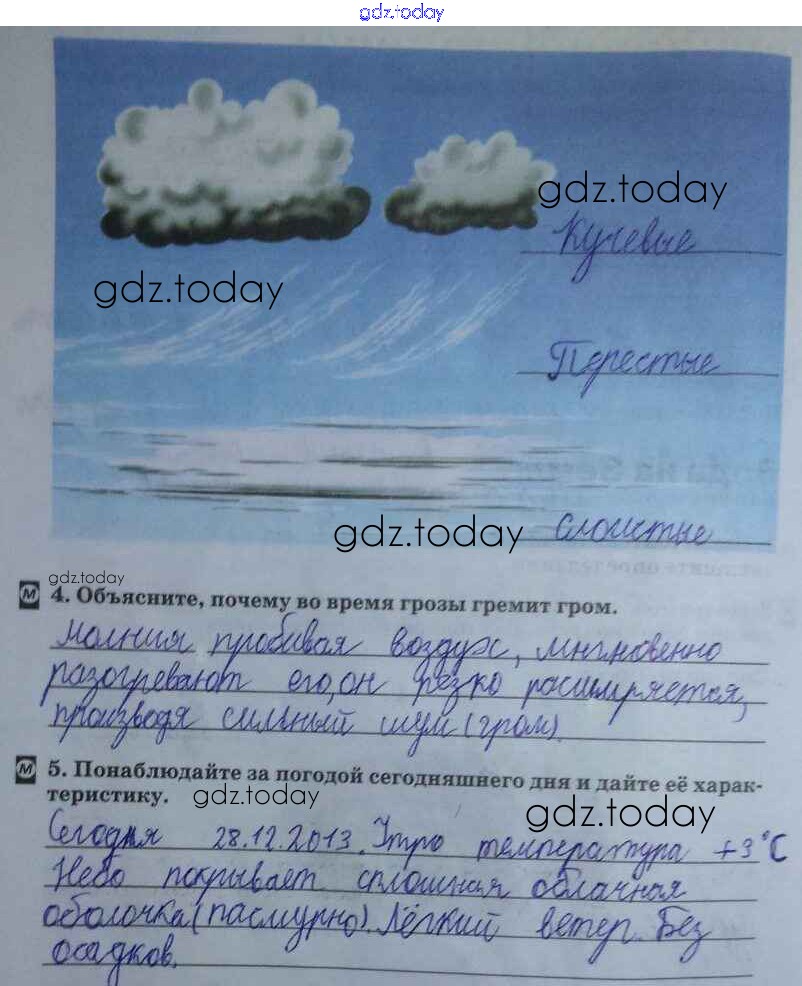 gdz.today
gdz.today
Кучевые
gdz.today
Перестые
gdz.today
Слоистые
gdz.today
М 4. Объясните, почему во время грозы гремит гром.
Молния пробивая воздух, мгновенно
разогревают его, он резко расширяется,
производя сильный шум (гром).
М 5. Понаблюдайте за погодой сегодняшнего дня и дайте её харак-
теристику.
gdz.today
gdz.today
Сегодня 28.12.2013. Утро температура +3°С
Небо покрывает сплошная облачная
оболочка (пасмурно). Лёгкий ветер. Без
осадков.